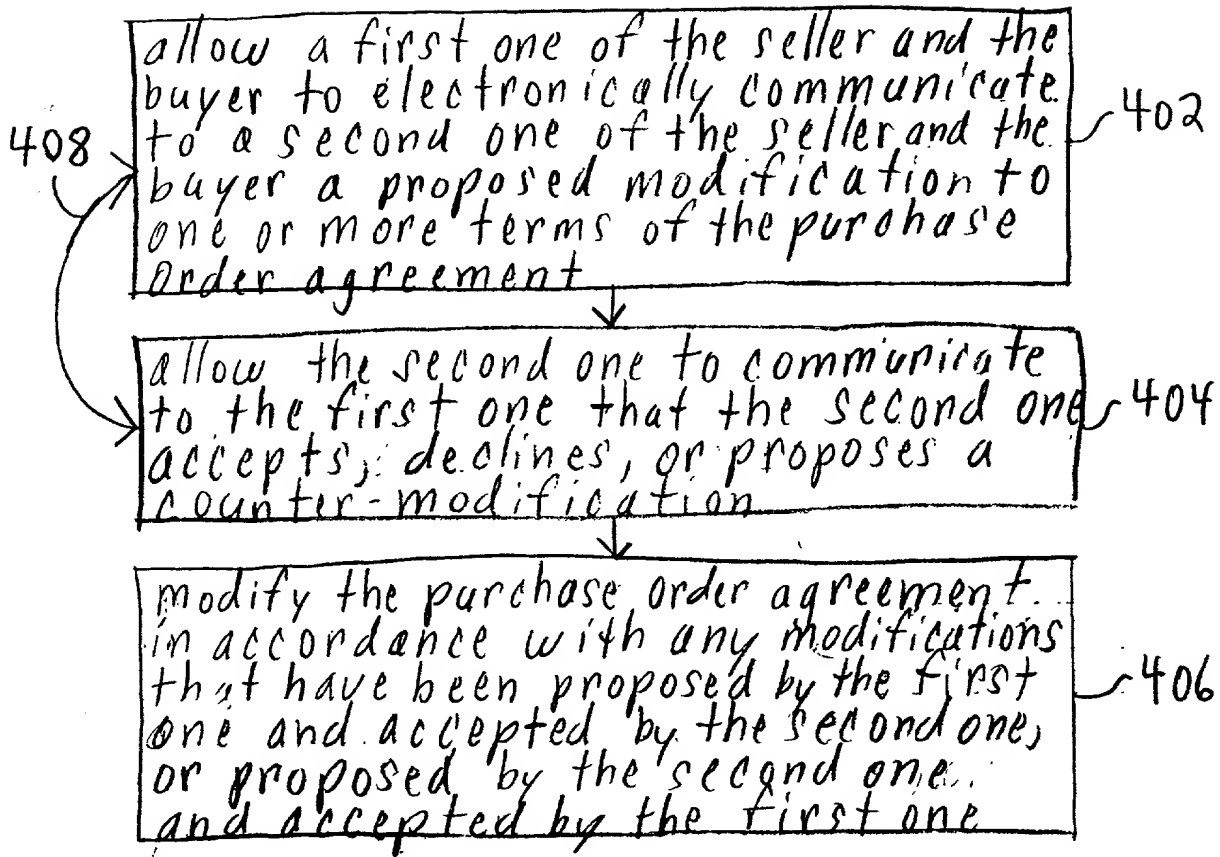 allow a first one of the seller and the
buyer to electronically communicate
to a second one of the seller and the
buyer a proposed modification to
one or more terms of the purchase
order agreement
402
408
allow the second one to communicate
to the first one that the second one
accepts, declines, or proposes a
counter-modification
404
modify the purchase order agreement
in accordance with any modifications
that have been proposed by the first
one and accepted by the second one,
or proposed by the second one
and accepted by the first one
406